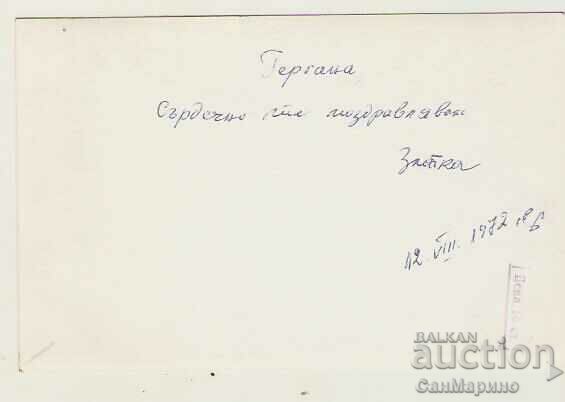 Гергана
Сърдечно те поздравявам
Златка
12. VIII. 1972
Цена
BALKAN
auction
СанМарино